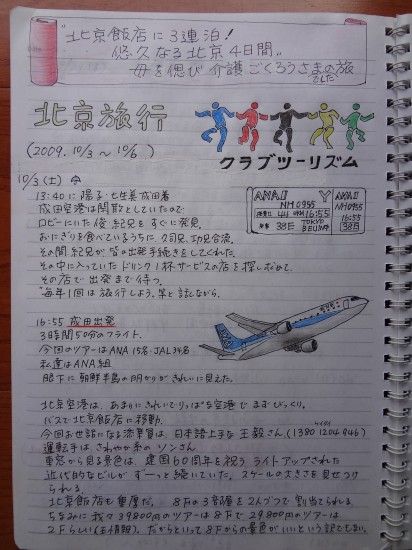 "北京飯店に3連泊!
悠久なる北京4日間"
母を偲び介護ごくろうさまの旅
でした
北京旅行
(2009. 10/3 ～ 10/6)
クラブツーリズム
10/3(土)
13:40に陽子・七生美成田着
成田空港は閑散としていたので
ロビーにいた俊・紀兄をすぐに発見。
おにぎりを食べているうちに、久司兄、功兄合流。
その間紀兄が皆の出発手続きをしてくれた。
その中に入っていたドリンク1杯サービスの店を探し求めて
その店で出発まで待つ。
"毎年1回は旅行しよう。"等と話しながら。
ANA
Y
NH0955
16:55
38E
TOKYO
BEIJING
ANA
NH0955
16:55
38E
16:55 成田出発
3時間50分のフライト。
今回のツアーはANA15名・JAL34名
私達はANA組
眼下に朝鮮半島の明かりがきれいに見えた。
ANA
北京空港は、あまりにきれいでりっぱな空港でまずびっくり。
バスで北京飯店に移動。
今回お世話になる添乗員は、日本語上手な王毅さん(13801204946)
運転手はさわやか系のソンさん。
車窓から見る景色は、建国60周年を祝うライトアップされた
近代的なビルがずーっと続いていた。スケールの大きさを見せつけ
られる。
北京飯店も重厚だ。8Fの3部屋を2人づつで割当てられる。
ちなみに我々39800円のツアーは8Fで29800円のツアーは
2Fらしい(王情報)。だからといって8Fからの景色がいいという訳でもない。